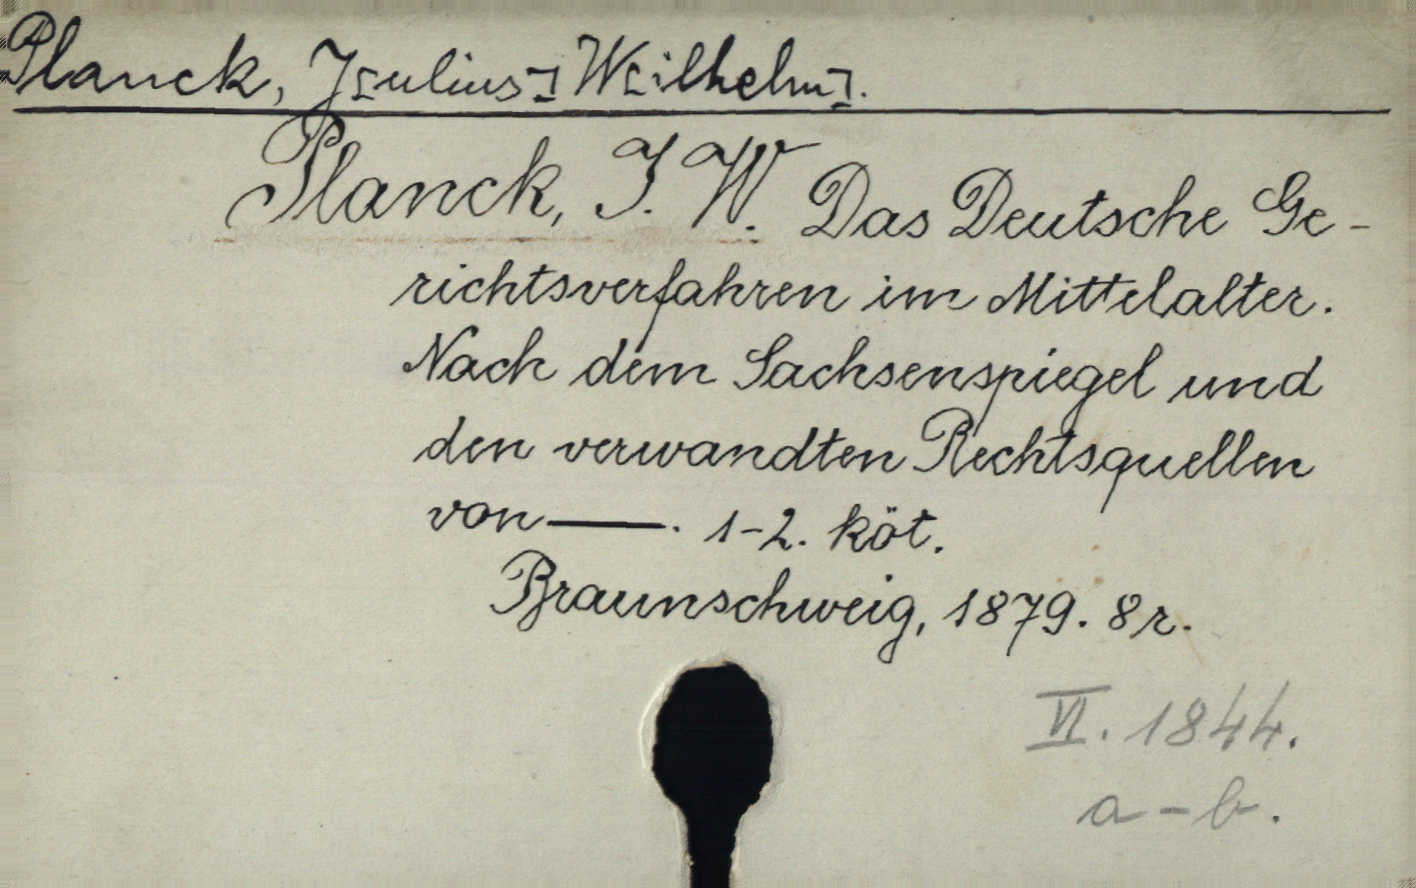 Planck, J[ulius] W[ilhelm].
Planck, J. W. Das Deutsche Ge-
richtsverfahren im Mittelalter.
Nach dem Sachsenspiegel und
den verwandten Rechtsquellen
von —. 1-2. köt.
Braunschweig, 1879. 8r.
VI. 1844.
a-b.